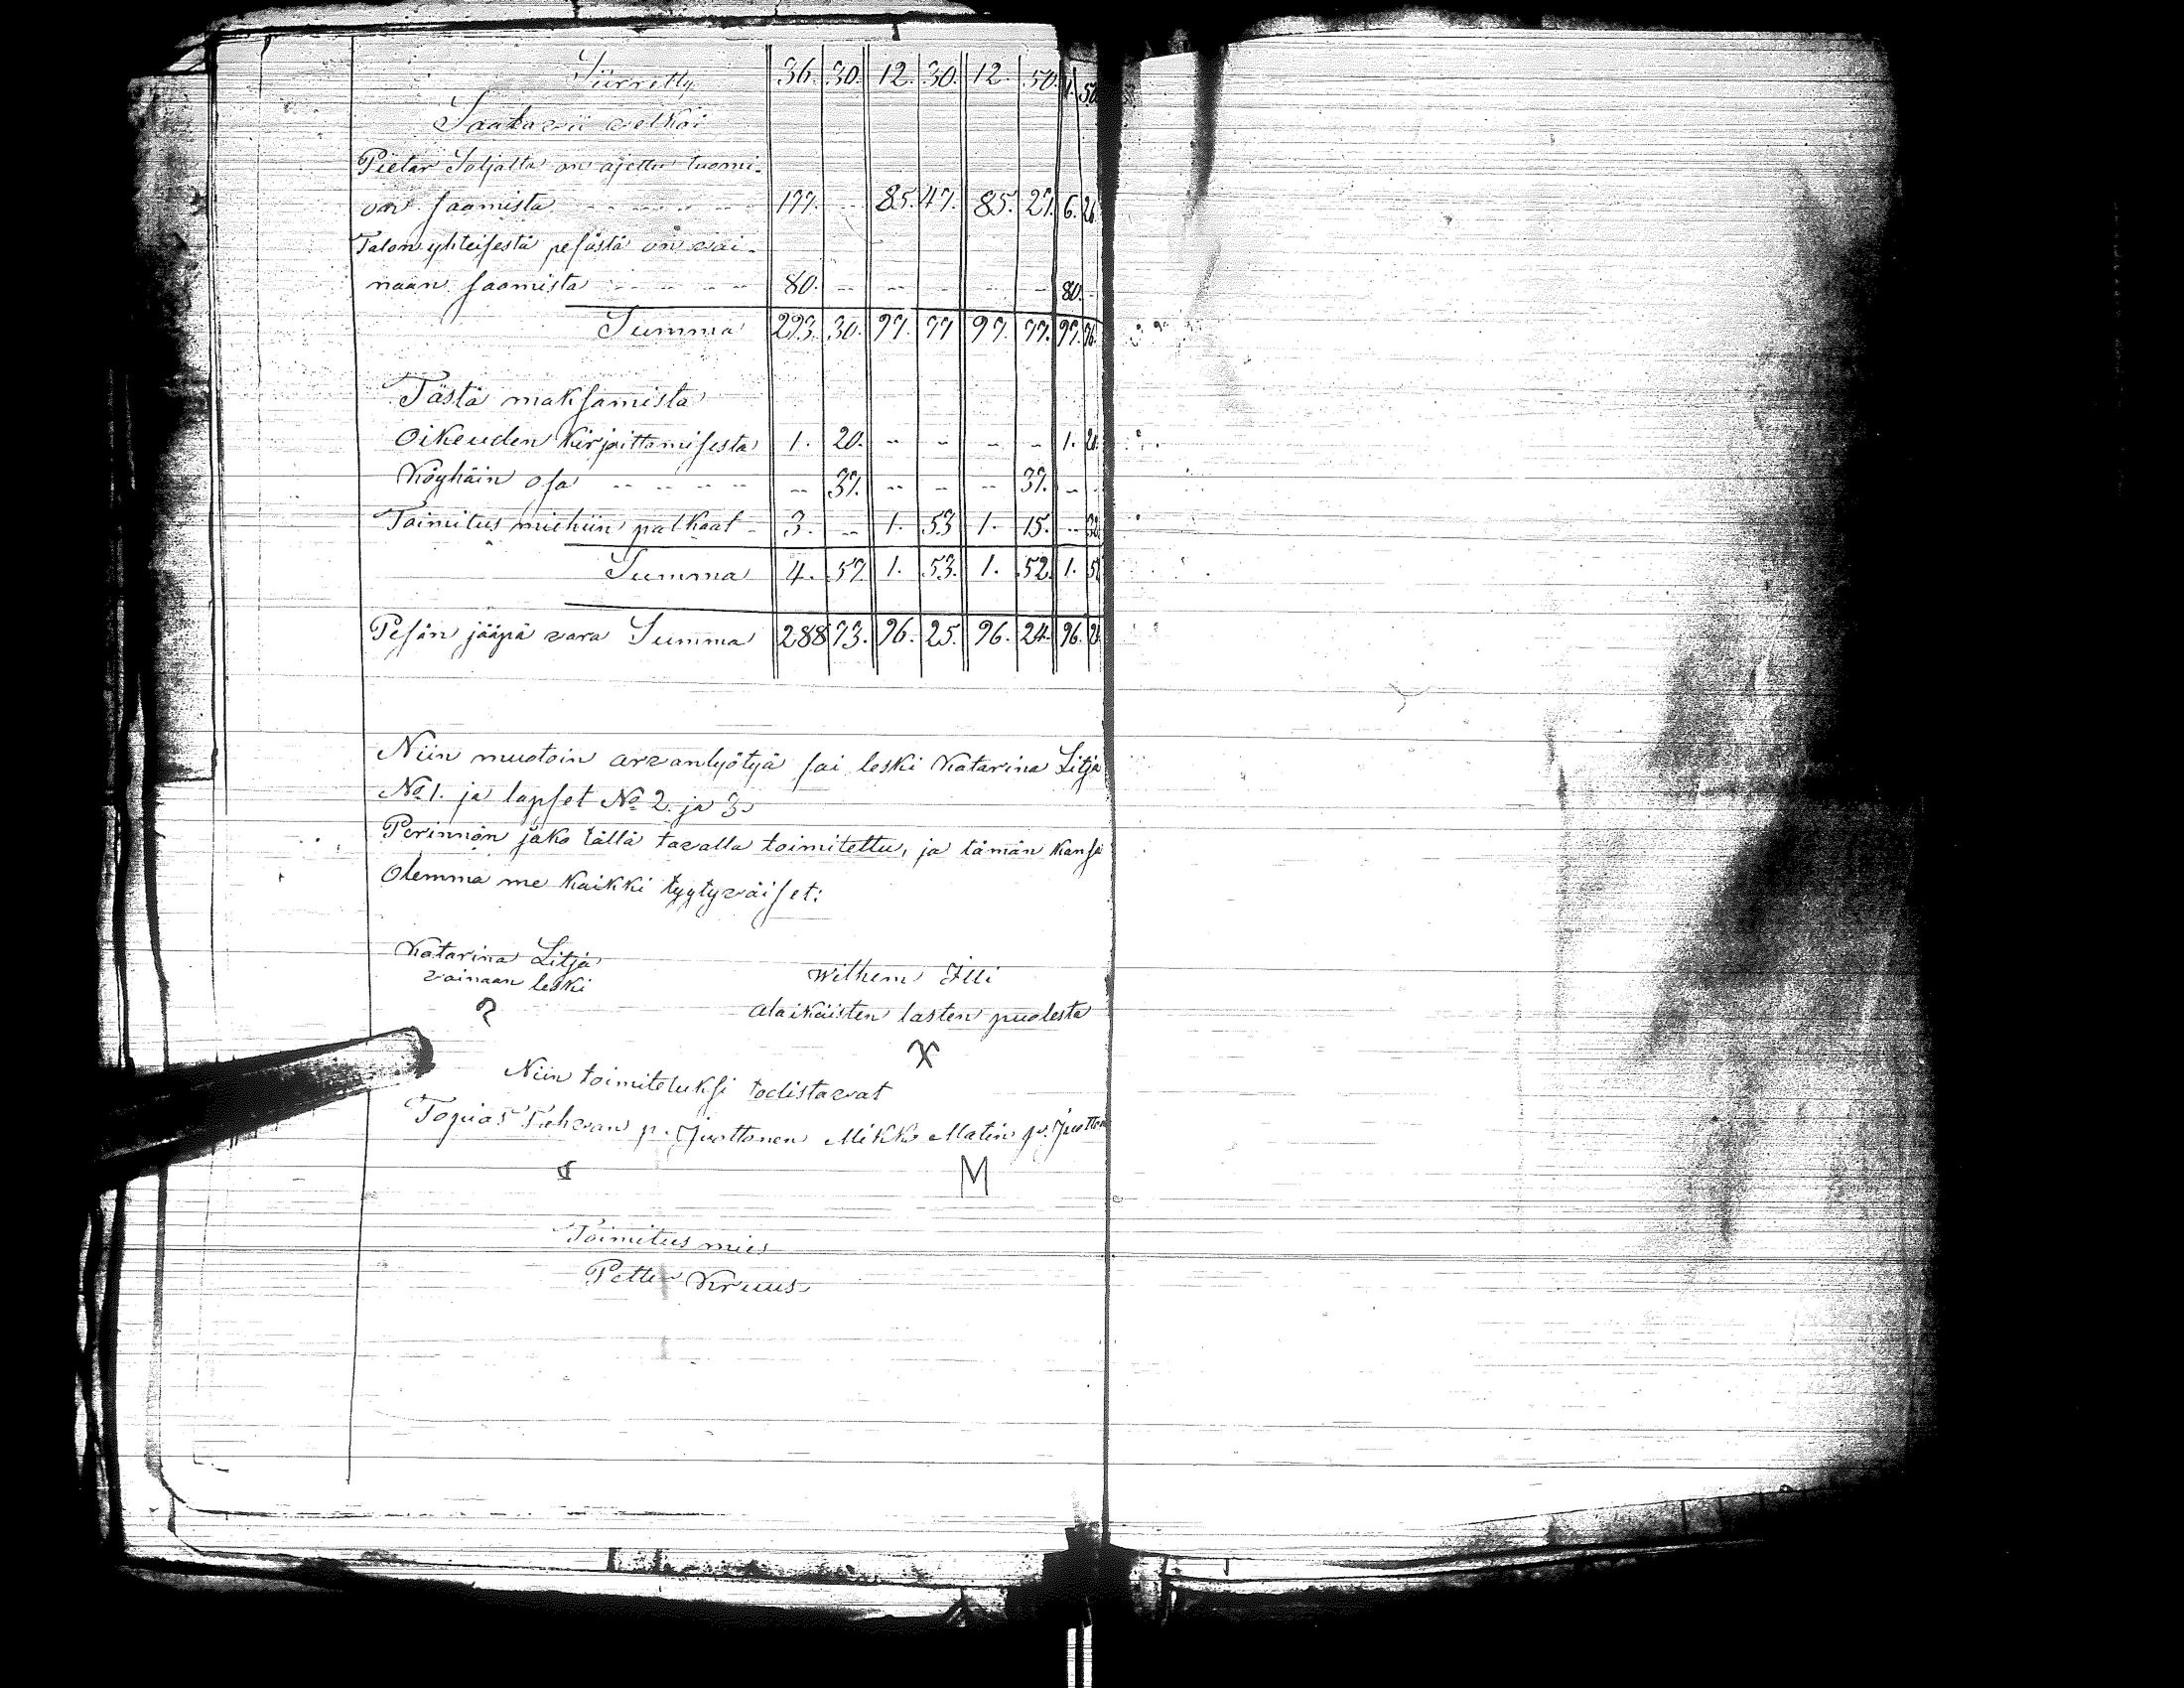 Siirretty 36. 30. 12. 30. 12. 50. 11. 50
Saatavii velkoi
Pietar Soljalta on ajettu tuomi-
on saomista 177. -- 85. 47. 85. 27. 6. 26
Talon yhteisestä pesästä on vai-
naan saomista 80. -- -- -- -- -- 80. -
Summa 293. 30. 97. 77 97. 77. 97. 76.
Tästä maksamista
Oikeuden kirjoittamisesta 1. 20. -- -- -- -- 1. 20.
Köyhäin osa -- 37. -- -- -- 37. --
Toimitus miehiin palkaat 3. -- 1. 53 1. 15. -- 32
Summa 4. 57. 1. 53. 1. 52. 1. 52
Pesän jääpä vara Summa 288 73. 96. 25. 96. 24. 96. 24
Niin muotoin arvanlyötyä sai leski Katarina Litja
No 1. ja lapset No 2. ja 3.
Perinnön jako tällä tavalla toimitettu, ja tämän kansa
Olemma me kaikki tyytyväiset:
Katarina Litja
vainaan leski
Wilhem Illi
alaikäisten lasten puolesta
X
Niin toimiteluksi todistavat
Topias Tahvan p. Juottonen Mikko Matin p. Juotton
M
Toimitus mies
Petter Kruus